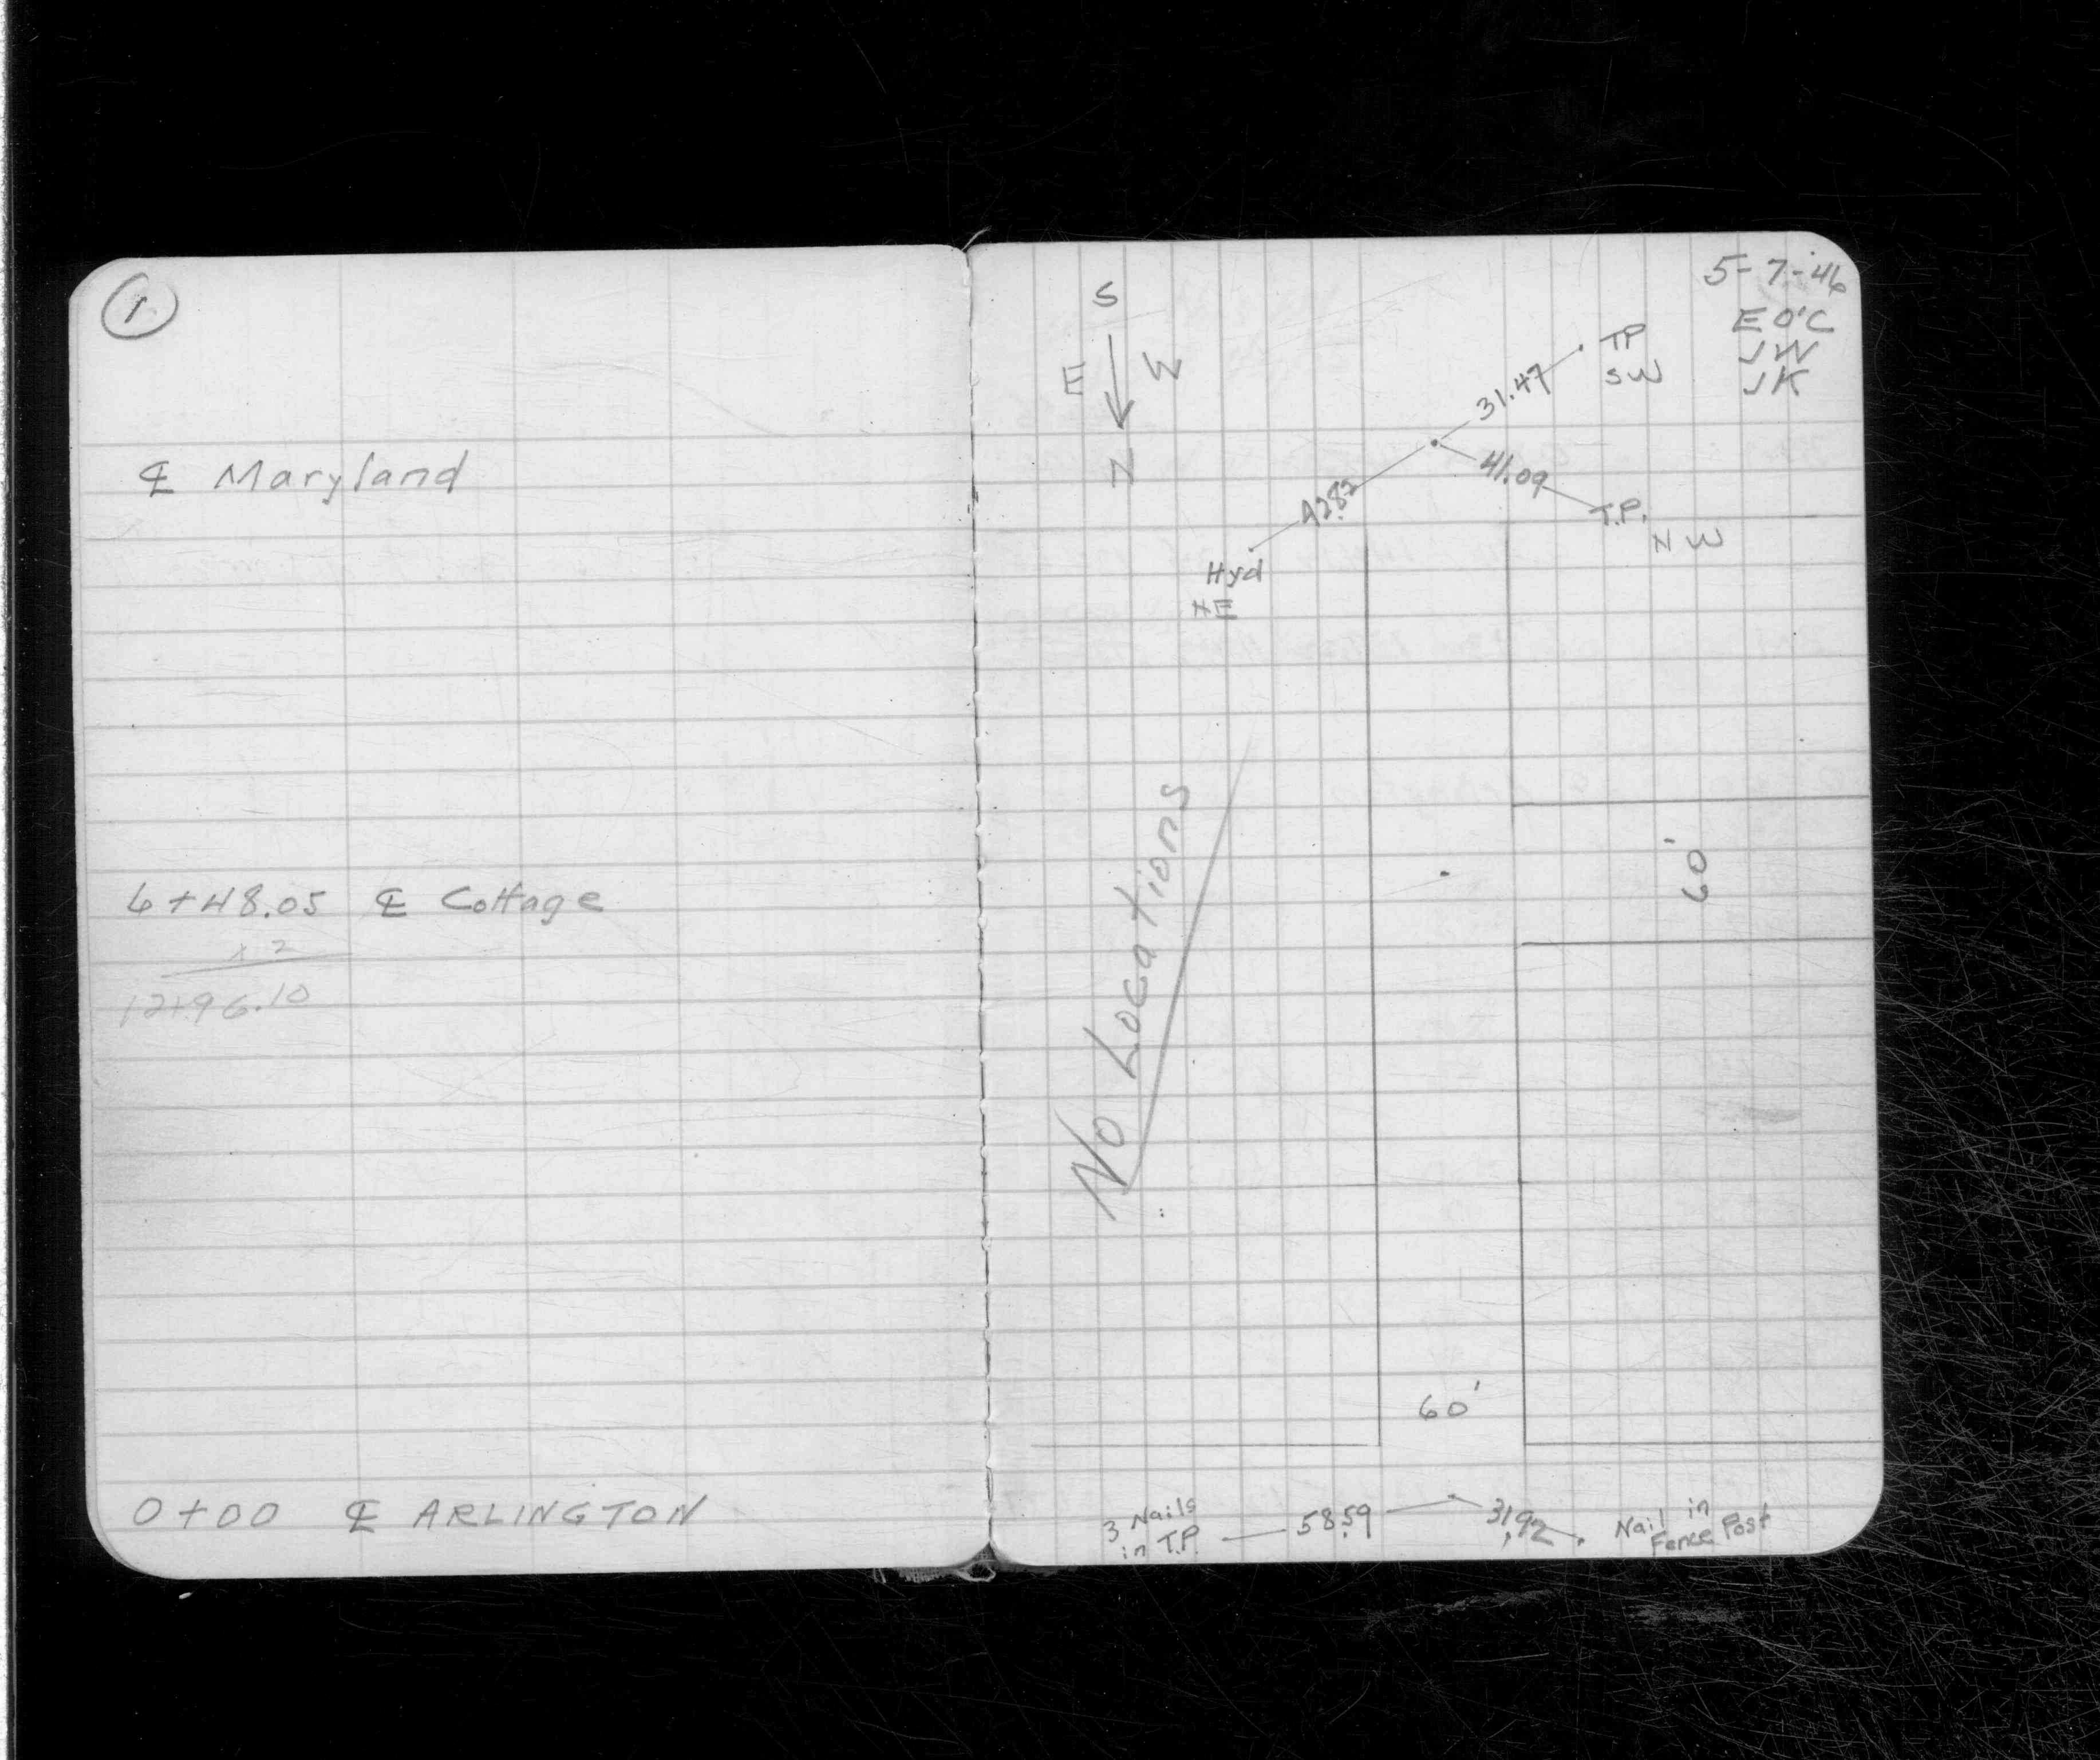 1
℄ Maryland
6+48.05 ℄ Cottage
x 2
12+96.10
0+00 ℄ ARLINGTON
5-7-46
EO'C
JW
JK
S
E W
N
31.47
TP
SW
41.09
T.P.
NW
42.82
Hyd
NE
No Locations
60'
60'
3 Nails
in T.P.
58.59
31.92
Nail in
Fence Post